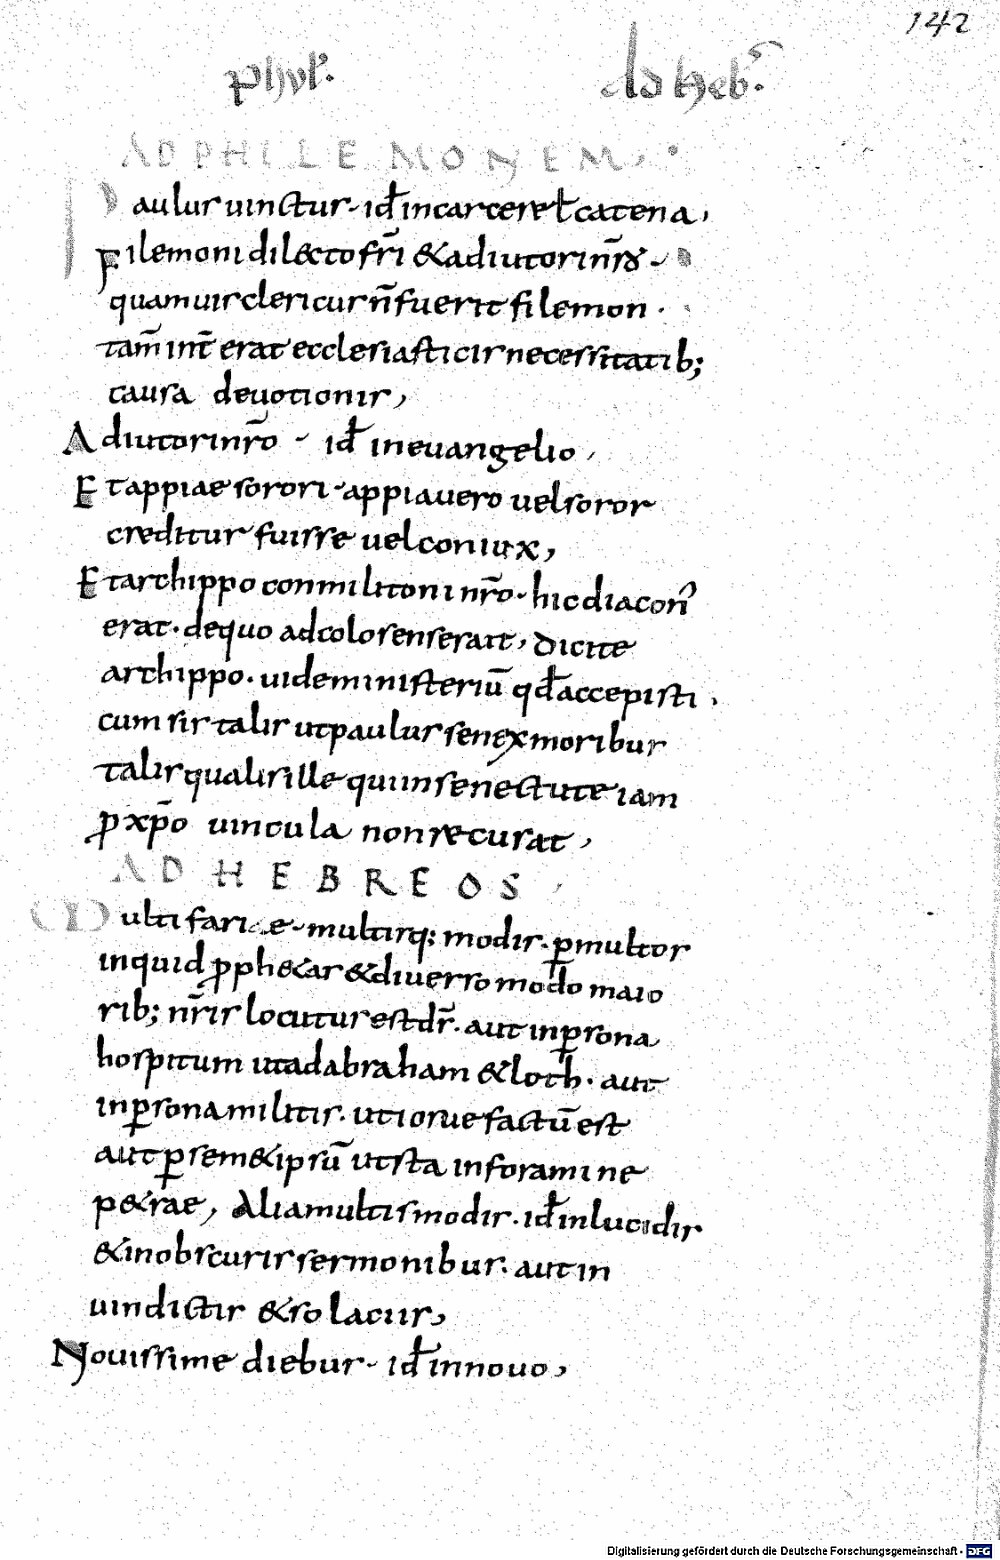 142
phyl. ad heb.
AD PHILEMONEM,
Paulus uinctus. id̄ incarcere ł catena,
Filemoni dilecto fr̄i & adiutori nr̄o.
quamuis clericus n̄ fuerit filemon.
tam̄ int̄ erat ecclesiasticis necessitatib;
causa deuotionis,
Adiutori nr̄o. id̄ in euangelio,
Et appiae sorori. appia uero uel soror
creditur fuisse uel coniux,
Et archippo conmilitoni nr̄o. hic diacon̄
erat. de quo ad colosenser ait, dicite
archippo. uide ministeriū qd̄ accepisti.
cum sis talis ut paulus senex moribus
talis qualis ille qui in senectute iam
ꝓ xp̄o uincula non recusat,
AD HEBREOS,
Multifarie. multisq; modis. ꝑ multos
inquid ꝓph&as & diuerso modo maio
rib; nr̄is locutus est ds̄. aut in ꝑsona
hospitum ut ad abraham & loth. aut
in ꝑsona militis. ut iosue factū est
aut ꝑ sem&ipsū ut sta in foramine
p&rae, Alia multis modis. id̄ in lucidis
& in obscuris sermonibus. aut in
uindictis & solaciis,
Nouissime diebus. id̄ in nouo,
Digitalisierung gefördert durch die Deutsche Forschungsgemeinschaft - DFG